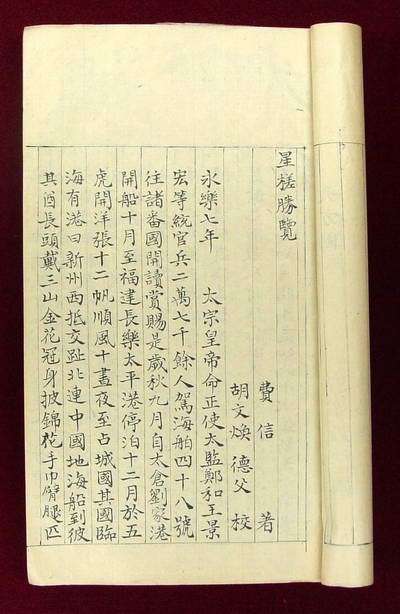 星槎勝覽
費信 著
胡文煥 德父 校
永樂七年 太宗皇帝命正使太監鄭和王景
宏等統官兵二萬七千餘人駕海舶四十八號
往諸番國開讀賞賜是歲秋九月自太倉劉家港
開船十月至福建長樂太平港停泊十二月於五
虎開洋張十二帆順風十晝夜至占城國其國臨
海有港曰新州西抵交趾北連中國地海船到彼
其酋長頭戴三山金花冠身披錦花手巾臂腿匹